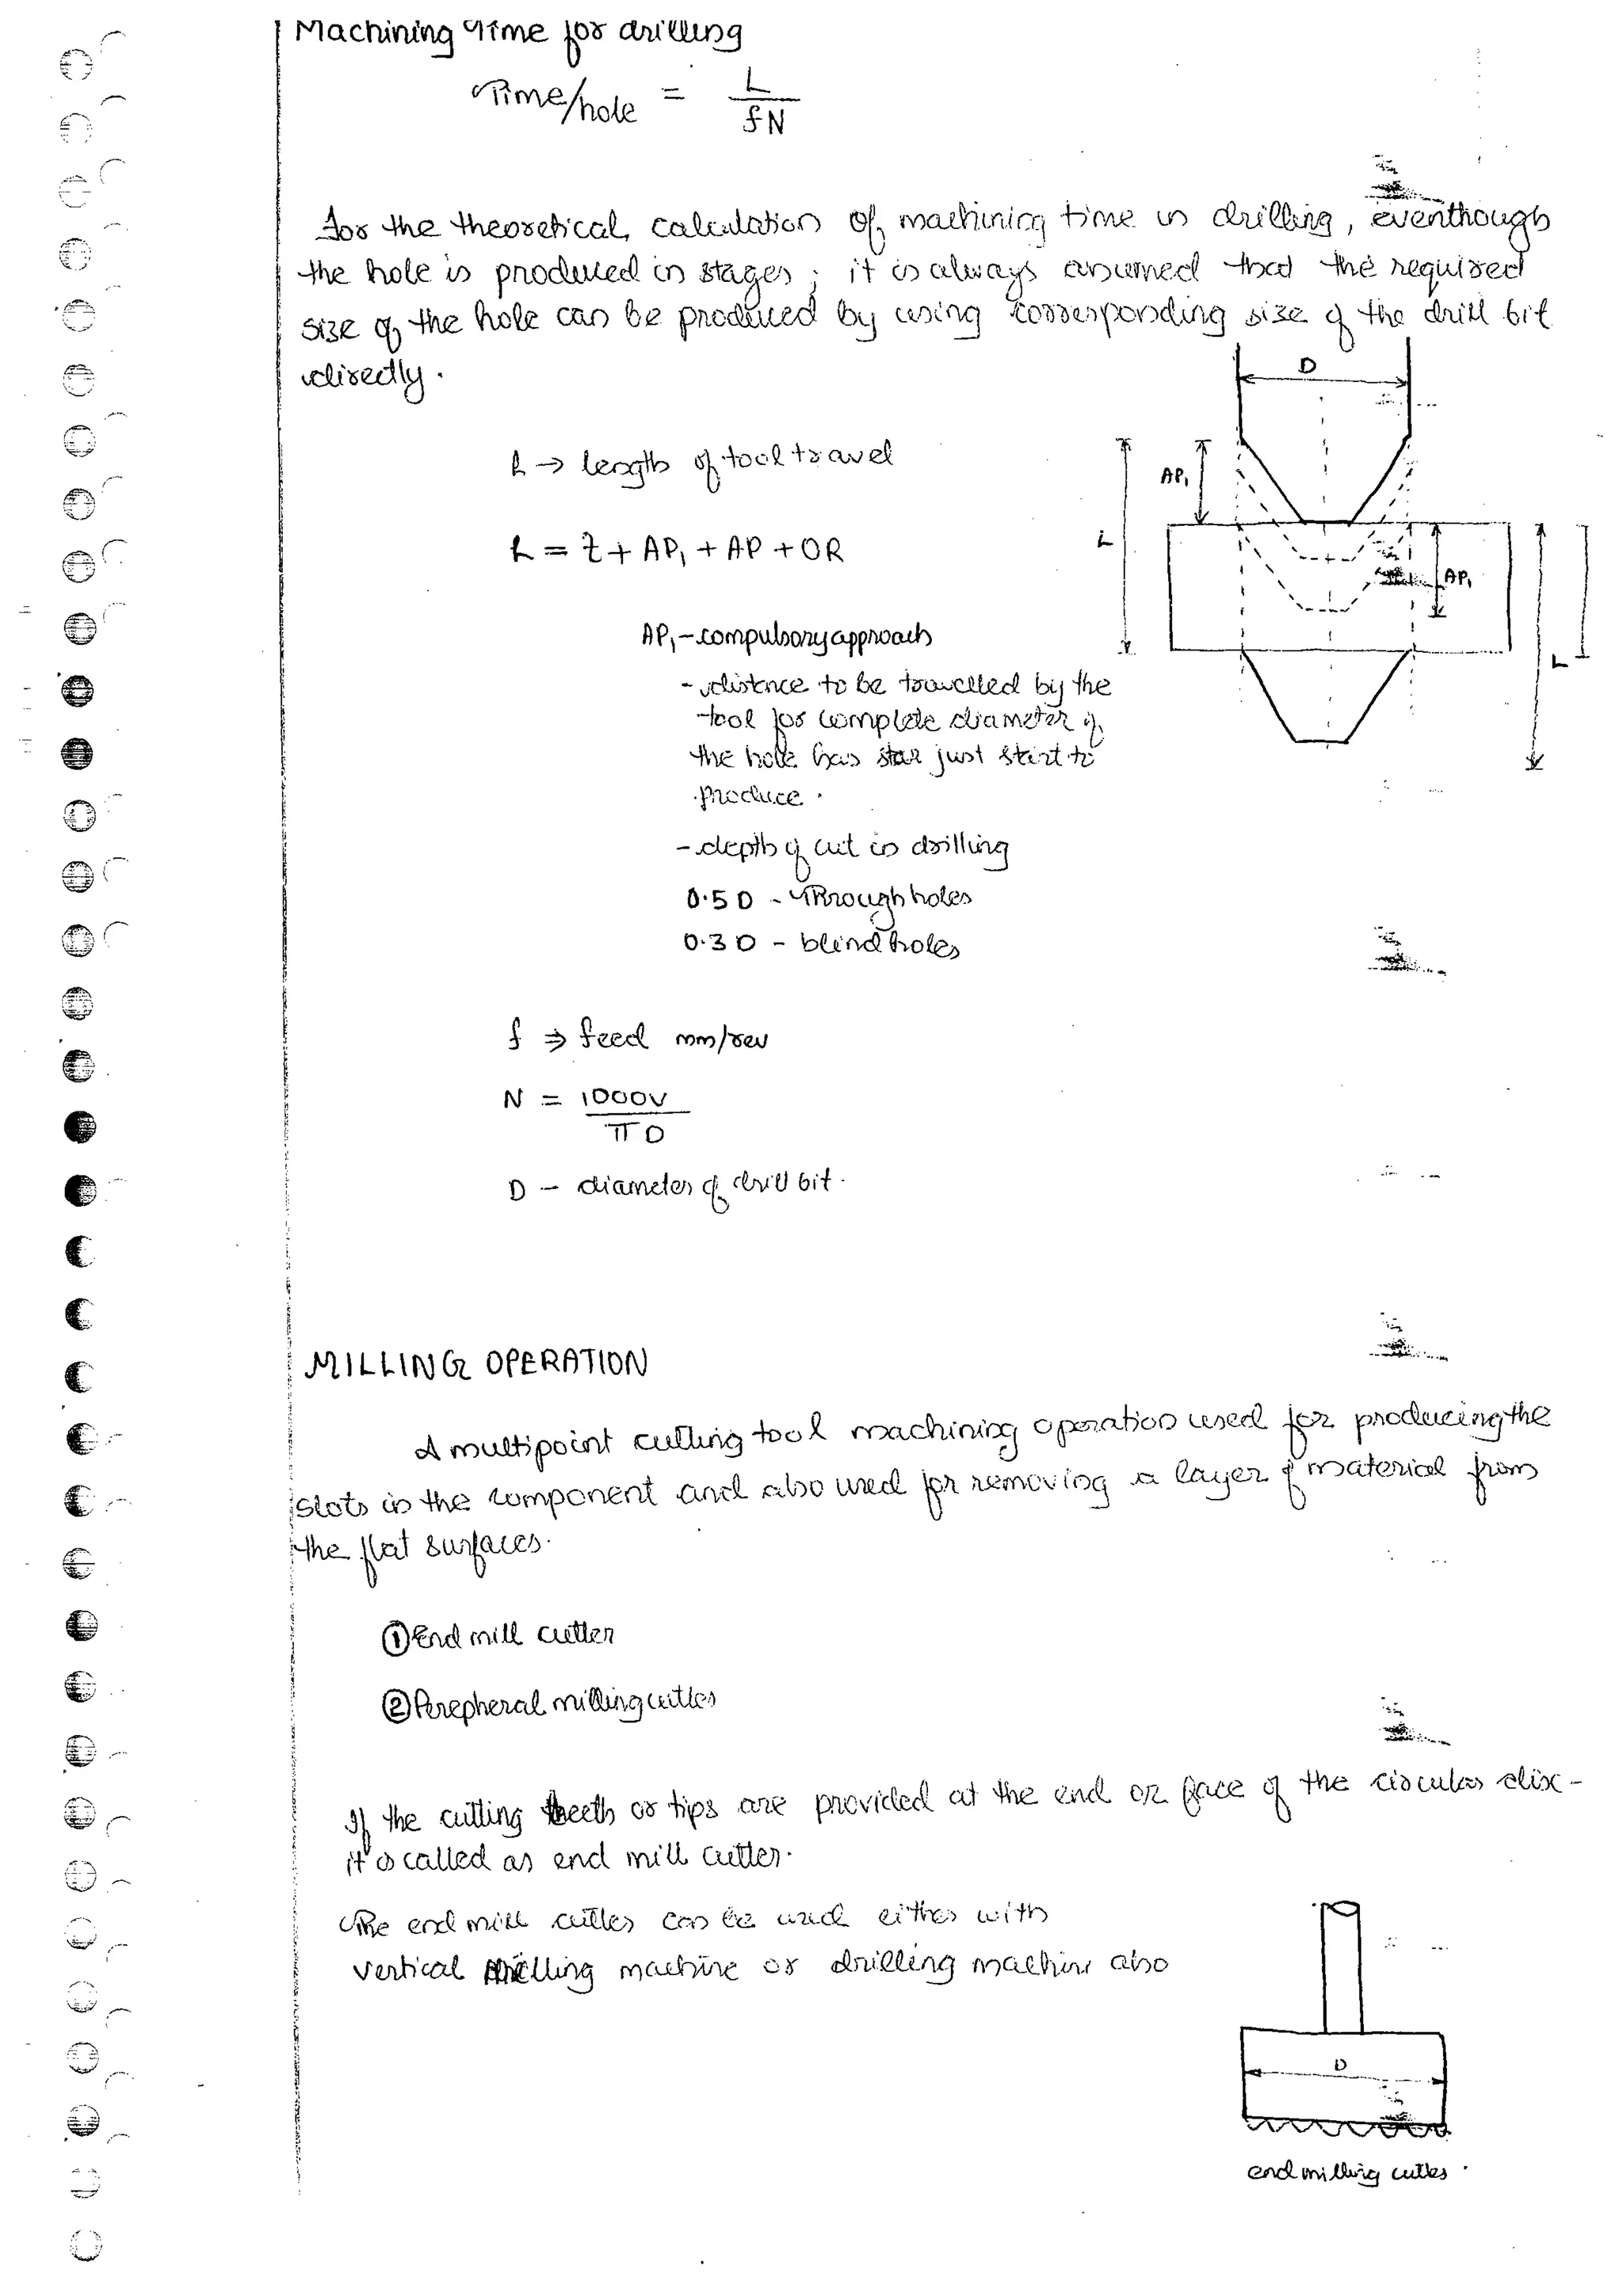 Machining Time for drilling
Time/hole = L
fN
For the theoretical calculation of machining time in drilling, eventhough
the hole is produced in stages; it is always assumed that the required
size of the hole can be produced by using corresponding size of the drill bit
directly.
D
L → length of tool travel
AP1
L = t + AP1 + AP + OR
L
AP1
AP1 - compulsory approach
L
- distence to be travelled by the
tool for complete diameter of
the hole has just start to
produce.
- depth of cut in drilling
0.5 D - Through holes
0.3 D - blind holes
f ⇒ feed mm/rev
N = 1000V
πD
D - diameter of drill bit.
MILLING OPERATION
A multipoint cutting tool machining operation used for producing the
slots in the component and also used for removing a layer of material from
the flat surfaces.
① End mill cutter
② Perepheral milling cutter
If the cutting teeth or tips are provided at the end or face of the circular disc -
it is called as end mill cutter.
The end mill cutter can be used either with
vertical milling machine or drilling machine also
D
end milling cutter.